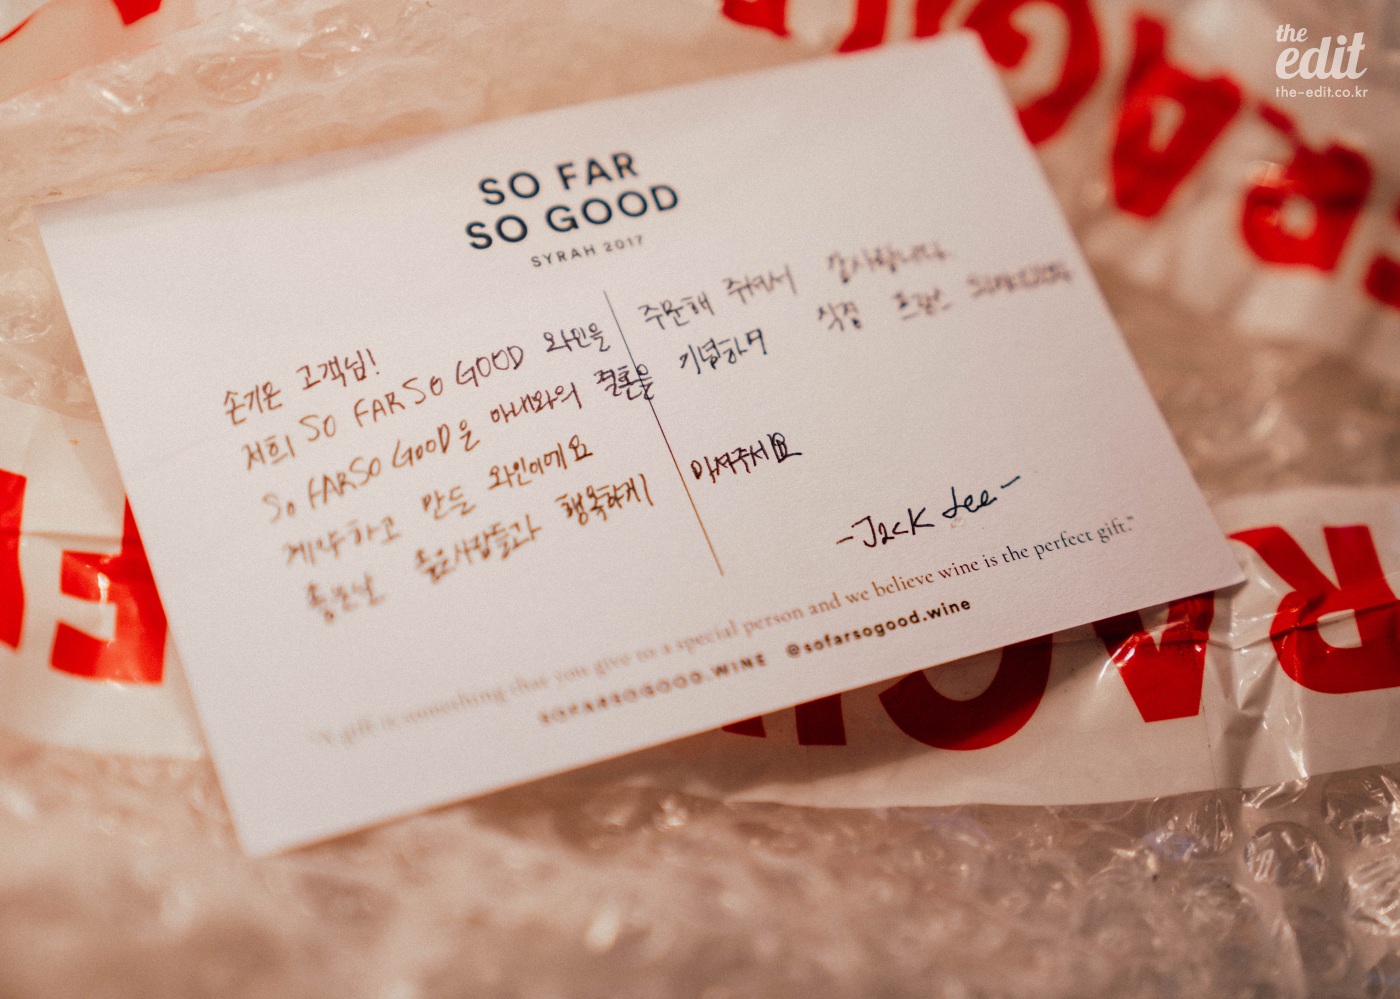 the
edit
the-edit.co.kr
SO FAR
SO GOOD
SYRAH 2017
손기은 고객님!
저희 SO FAR SO GOOD 와인을 주문해 주셔서 감사합니다.
SO FAR SO GOOD은 아내와의 결혼을 기념하며 직접 프랑스
계약하고 만든 와인이에요
좋은날 좋은사람들과 행복하게 마셔주세요
-Jack Lee-
"A gift is something that you give to a special person and we believe wine is the perfect gift."
SOFARSOGOOD.WINE @sofarsogood.wine